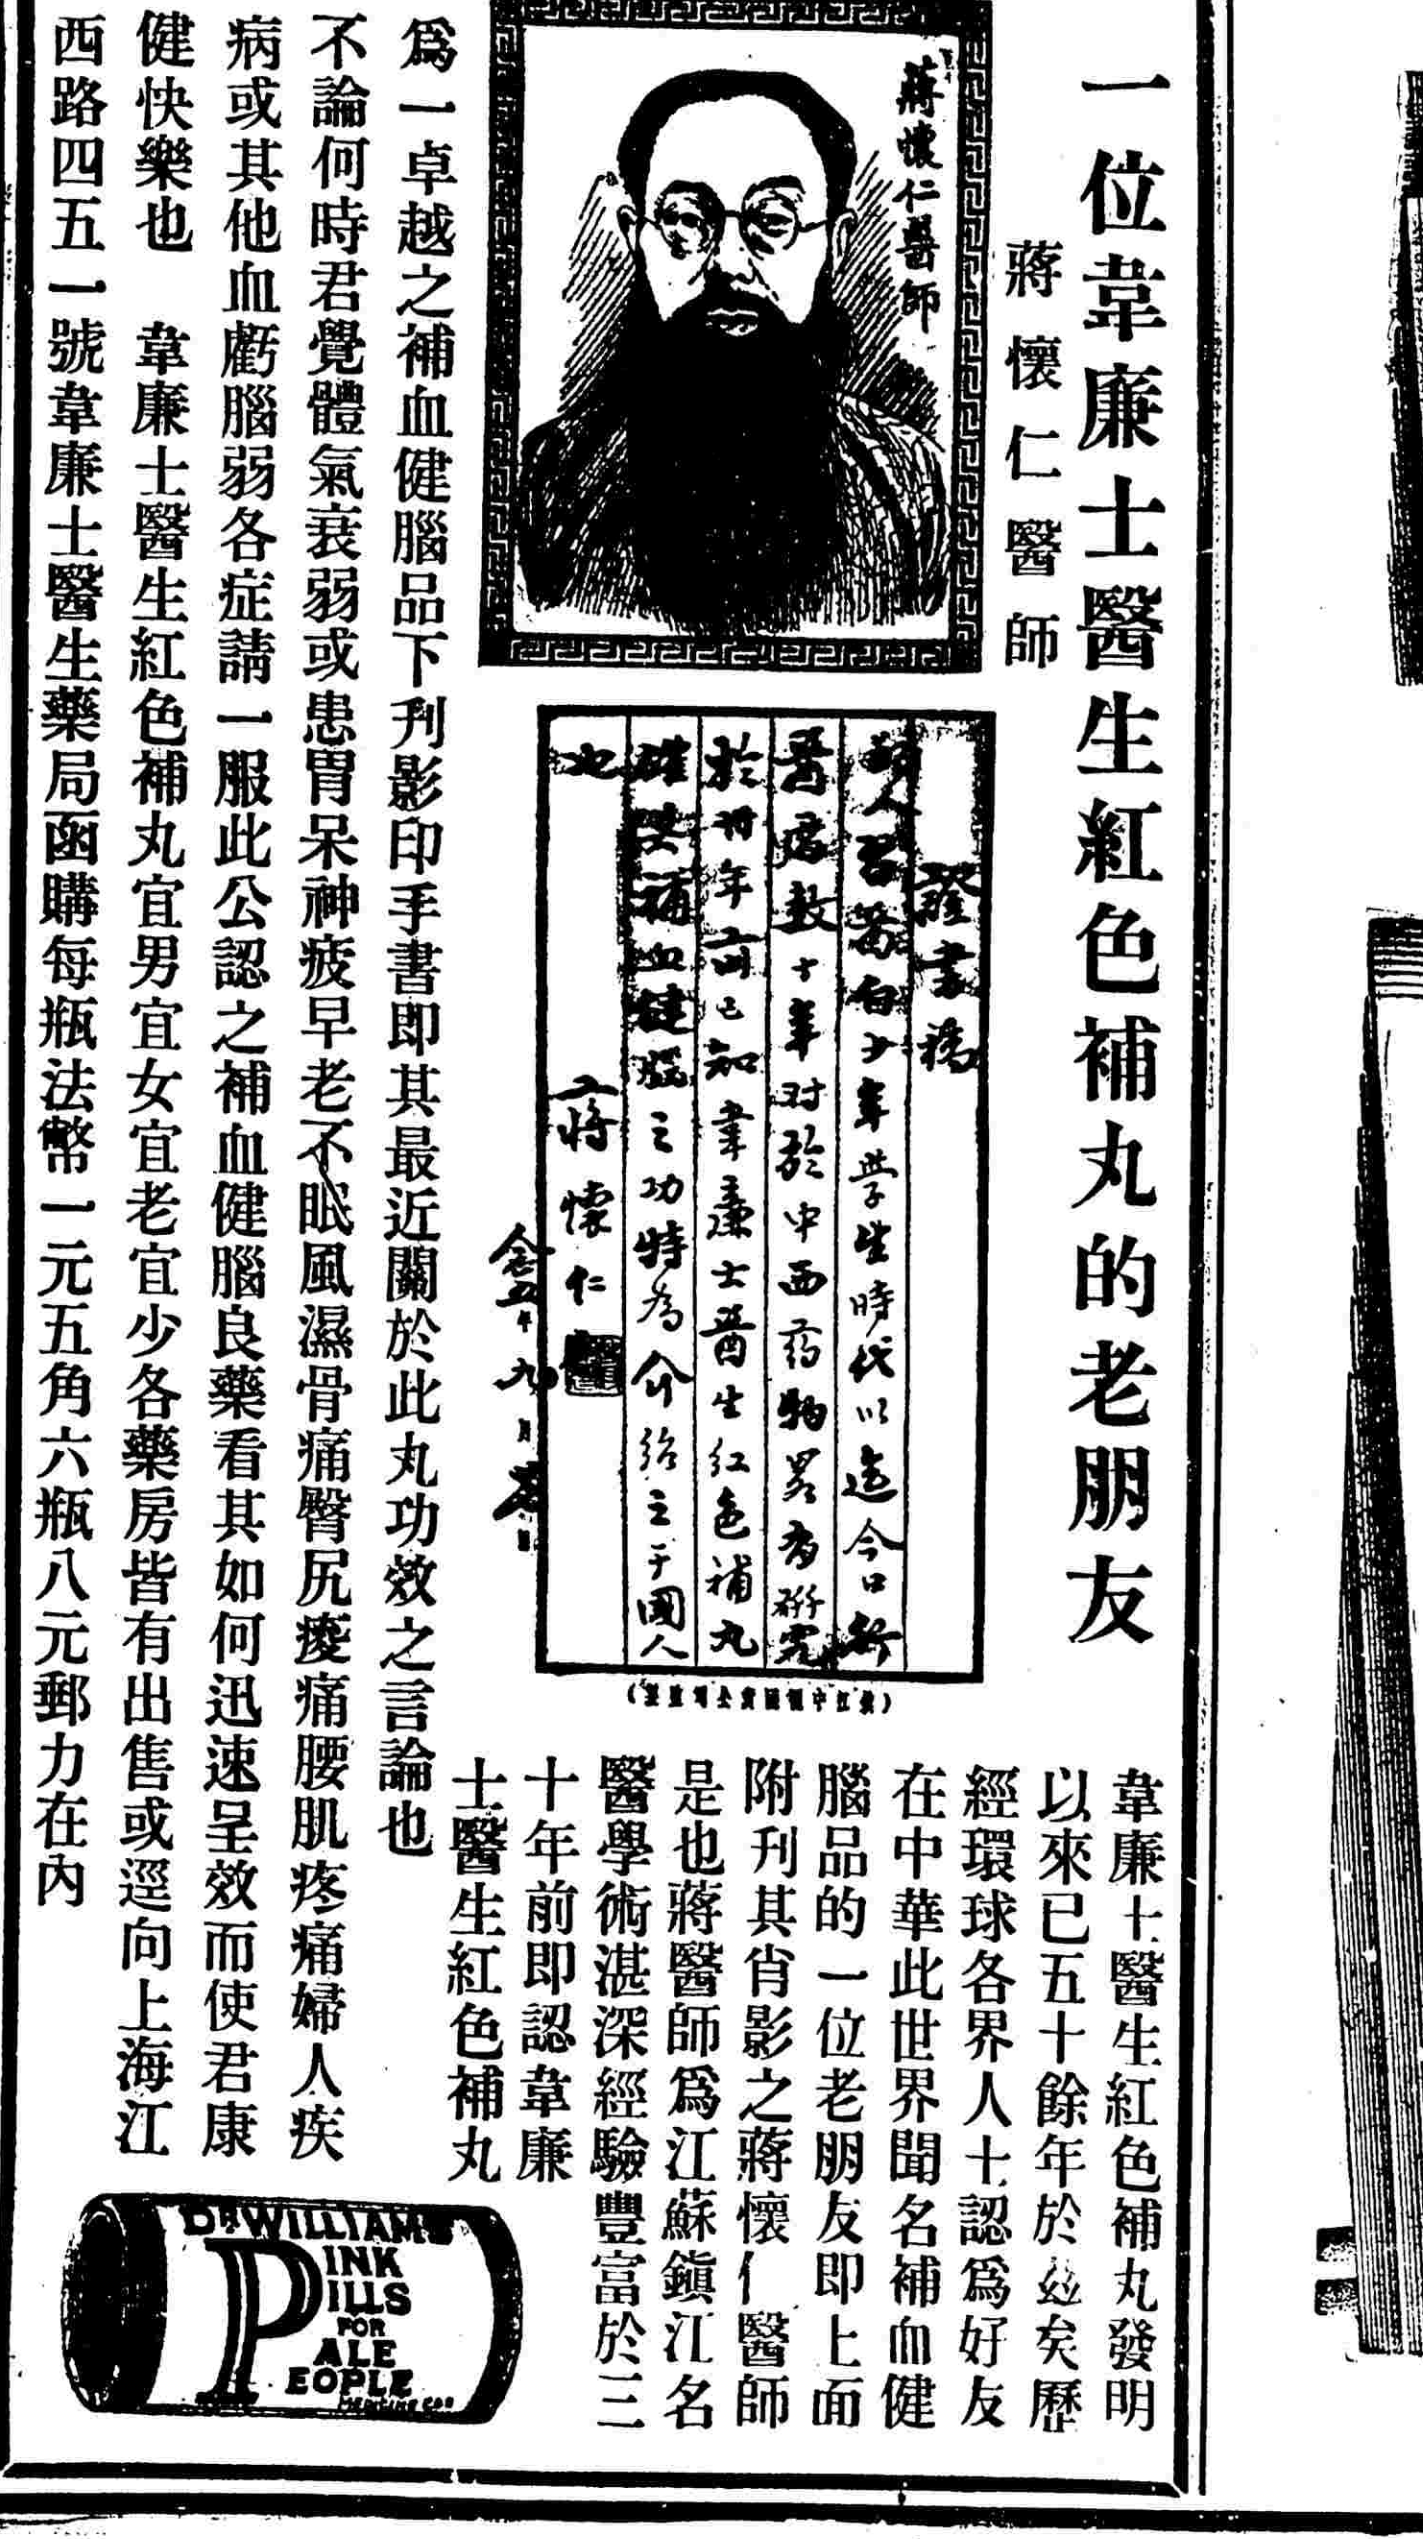 一位韋廉士醫生紅色補丸的老朋友
蔣懷仁醫師
蔣懷仁醫師
證書稿
醫爲數十年对於中西葯物畧有研究
於卅年前已知韋廉士醫生红色補丸
確其補血健腦之功特为介紹之于國人
也
蔣懷仁
韋廉士醫生紅色補丸發明
以來已五十餘年於茲矣歷
經環球各界人士認爲好友
在中華此世界聞名補血健
腦品的一位老朋友即上面
附刊其肖影之蔣懷仁醫師
是也蔣醫師爲江蘇鎭江名
醫學術湛深經驗豐富於三
十年前即認韋廉
士醫生紅色補丸
爲一卓越之補血健腦品下刋影印手書即其最近關於此丸功效之言論也
不論何時君覺體氣衰弱或患胃呆神疲早老不眠風濕骨痛臀尻痠痛腰肌疼痛婦人疾
病或其他血虧腦弱各症請一服此公認之補血健腦良藥看其如何迅速呈效而使君康
健快樂也 韋廉士醫生紅色補丸宜男宜女宜老宜少各藥房皆有出售或逕向上海江
西路四五一號韋廉士醫生藥局函購每瓶法幣一元五角六瓶八元郵力在內
DR. WILLIAMS
PINK
PILLS
FOR
PALE
PEOPLE